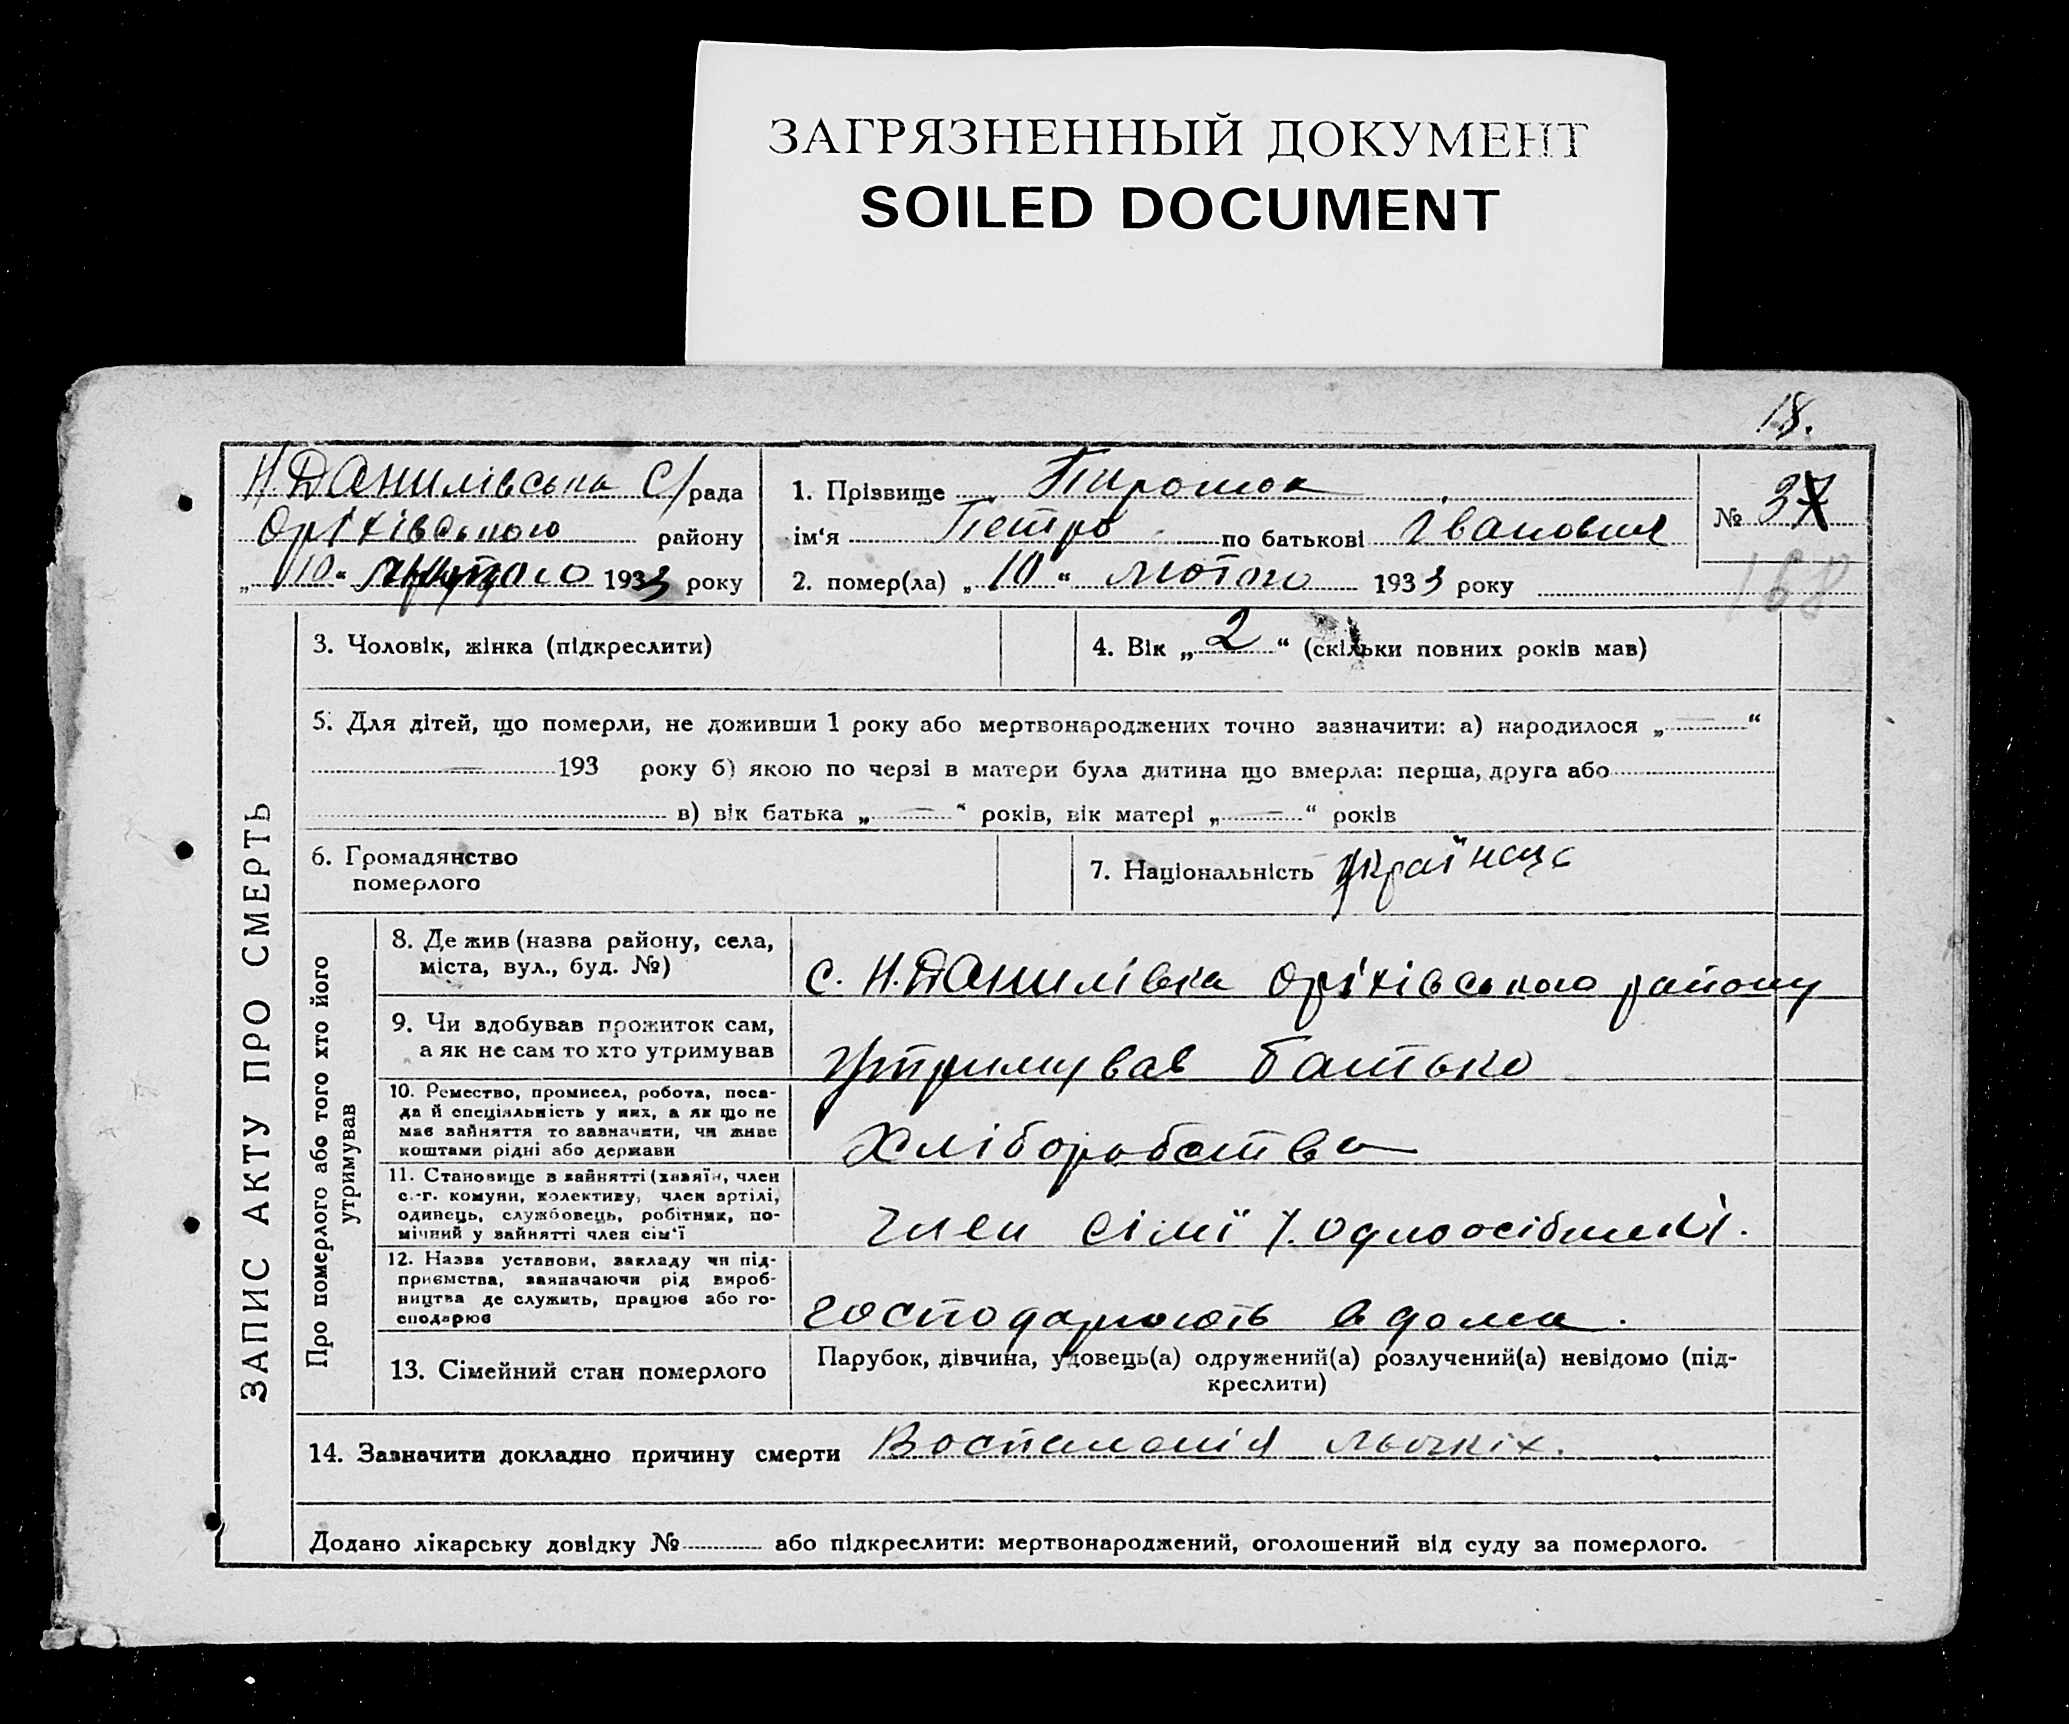 ЗАГРЯЗНЕННЫЙ ДОКУМЕНТ
SOILED DOCUMENT
18.
Н Данилівська С/рада
Оріхівського району
„10“ лютого 1933 року
1. Прізвище
ім‘я Петро по батькові Івановия
2. помер(ла) „10“ лютого 1933 року
№ 37
168
ЗАПИС АКТУ ПРО СМЕРТЬ
3. Чоловік, жінка (підкреслити)
4. Вік „2“ (скільки повних років мав)
5. Для дітей, що померли, не доживши 1 року або мертвонароджених точно зазначити: а) народилося „—“
— 193 року б) якою по черзі в матери була дитина що вмерла: перша, друга або
в) вік батька „—“ років, вік матері „—“ років
6. Громадянство
померлого
7. Національність Українець
Про померлого або того хто його
утримував
8. Де жив (назва району, села,
міста, вул., буд. №)
с. Н. Данилівка Оріхівського району
9. Чи вдобував прожиток сам,
а як не сам то хто утримував
Утримував батько
10. Ремество, промисел, робота, поса-
да й спеціяльність у них, а як що не
має зайняття то зазначити, чи живе
коштами рідні або держави
Хліборобство
11. Становище в зайнятті (хазяїн, член
с.-г. комуни, колективу, член артілі,
одинець, службовець, робітник, по-
мічний у зайнятті член сім‘ї
член сімї
12. Назва установи, закладу чи під-
приємства, зазначаючи рід вироб-
ництва де служить, працює або го-
сподарює
господарюють вдома.
13. Сімейний стан померлого
Парубок, дівчина, удовець(а) одружений(а) розлучений(а) невідомо (під-
креслити)
14. Зазначити докладно причину смерти Воспаленія льогкіх.
Додано лікарську довідку № або підкреслити: мертвонароджений, оголошений від суду за померлого.